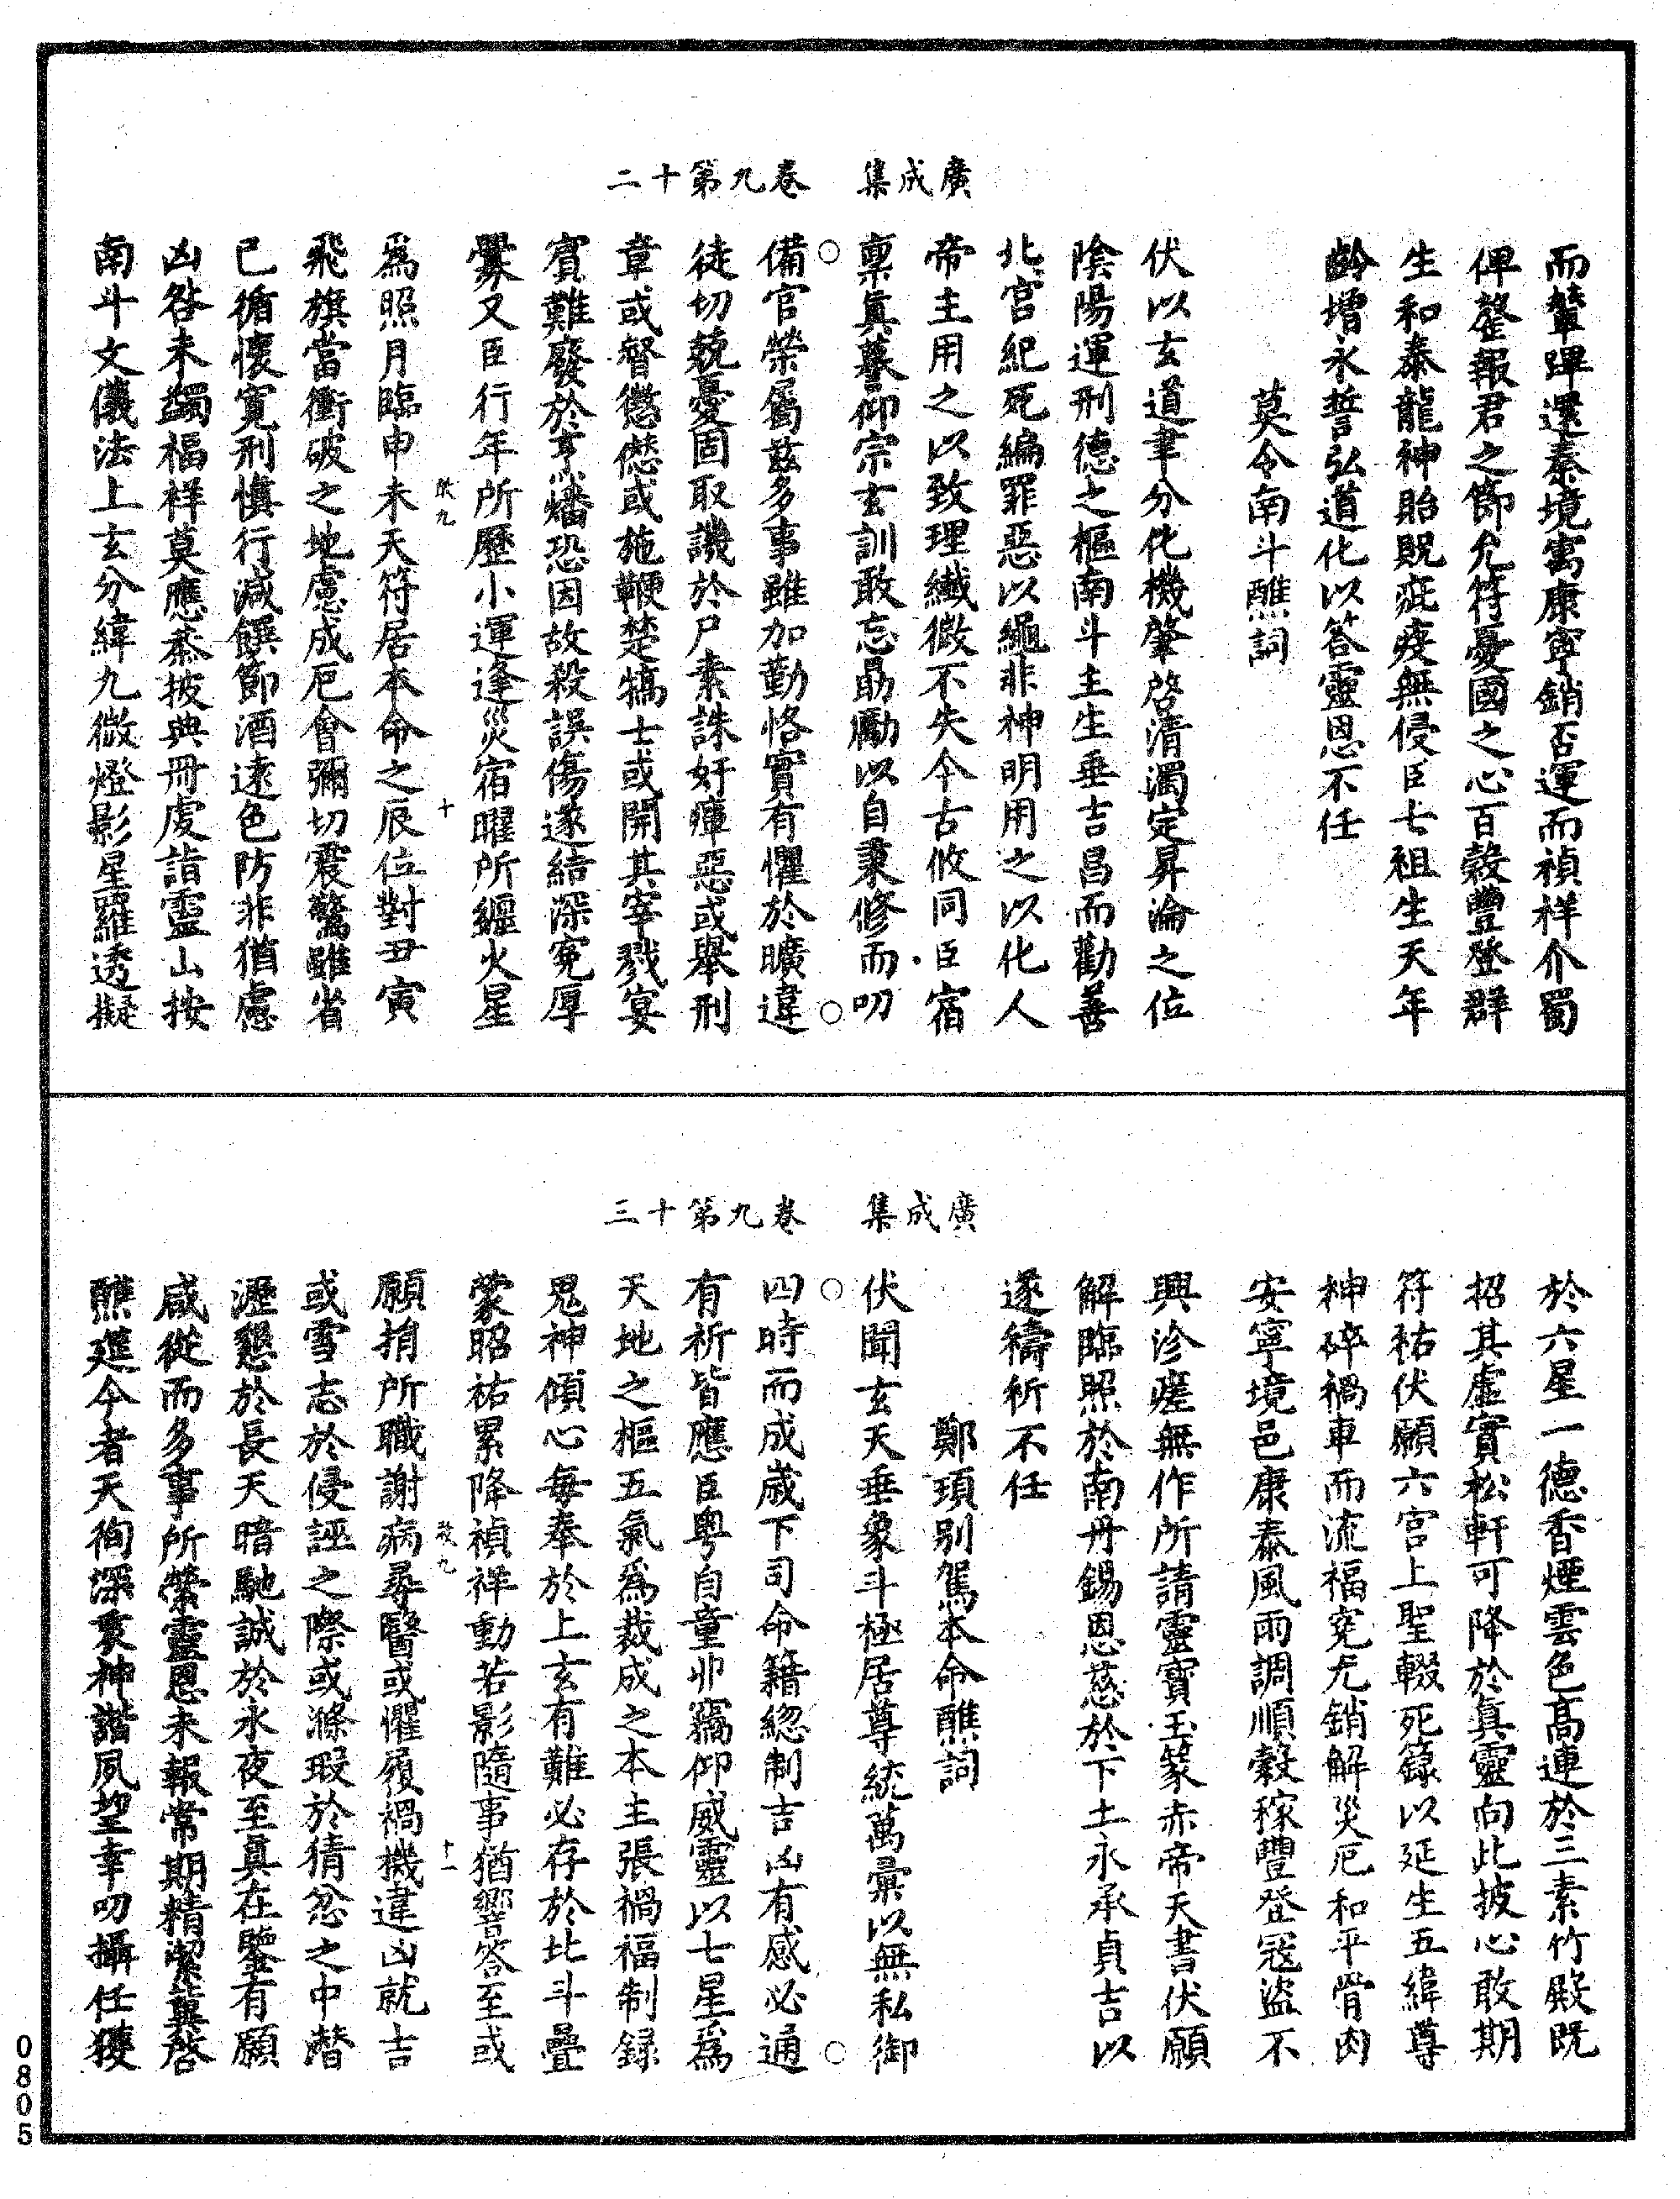 廣成集　卷九第十二
而輦蹕還秦境寓康寧銷否運而禎祥介蜀
俾罄報君之節允符憂國之心百穀豐登群
生和泰龍神貽貺疵疫無侵臣七祖生天年
齡增永誓弘道化以答靈恩不任
莫令南斗醮詞
伏以玄道聿分化機肇啓清濁定昇淪之位
陰陽運刑德之樞南斗主生垂吉昌而勸善
北宮紀死編罪惡以繩非神明用之以化人
帝主用之以致理纖微不失今古攸同臣宿
稟眞蕐仰宗玄訓敢忘勗勵以自秉修而叨
備官榮屬茲多事雖加勤恪實有懼於曠違
徒切兢憂固取譏於尸素誅奸瘅惡或舉刑
章或督懲僁或施鞭楚犒士或開其宰戮宴
賓難廢於烹燔恐因故殺誤傷遂結深寃厚
釁又臣行年所歷小運逢災宿曜所纏火星
爲照月臨申未天符居本命之辰位對丑寅
飛旗當衝破之地慮成厄會彌切震驚雖省
己循懷寬刑愼行減饌節酒遠色防非猶慮
凶咎未蠲福祥莫應忝披典冊虔詣靈山按
南斗文儀法上玄分緯九微燈影星羅透擬
廣成集　卷九第十三
於六星一德香煙雲色高連於三素竹殿既
招其虛實松軒可降於眞靈向此披心敢期
符祐伏願六宮上聖輟死籙以延生五緯尊
神碎禍車而流福寃尤銷解災厄和平骨肉
安寧境邑康泰風雨調順穀稼豐登寇盜不
興沴瘥無作所請靈寶玉篆赤帝天書伏願
解臨照於南丹錫恩慈於下土永承貞吉以
遂禱祈不任
鄭頊別駕本命醮詞
伏聞玄天垂象斗極居尊統萬彙以無私御
四時而成歲下司命籍總制吉凶有感必通
有祈皆應臣粤自童丱竊仰威靈以七星爲
天地之樞五氣爲裁成之本主張禍福制録
鬼神傾心每奉於上玄有難必存於北斗疊
蒙昭祐累降禎祥動若影隨事猶響答至或
願捐所職謝病尋醫或懼履禍機違凶就吉
或雪志於侵誣之際或滌瑕於猜忿之中瞽
瀝懇於長天暗馳誠於永夜至眞在鑒有願
咸從而多事所縈靈恩未報常期精潔冀啓
醮筵今者天徇深衷神諧夙望幸叨攝任獲
敢九
十
敢九
十一
0805